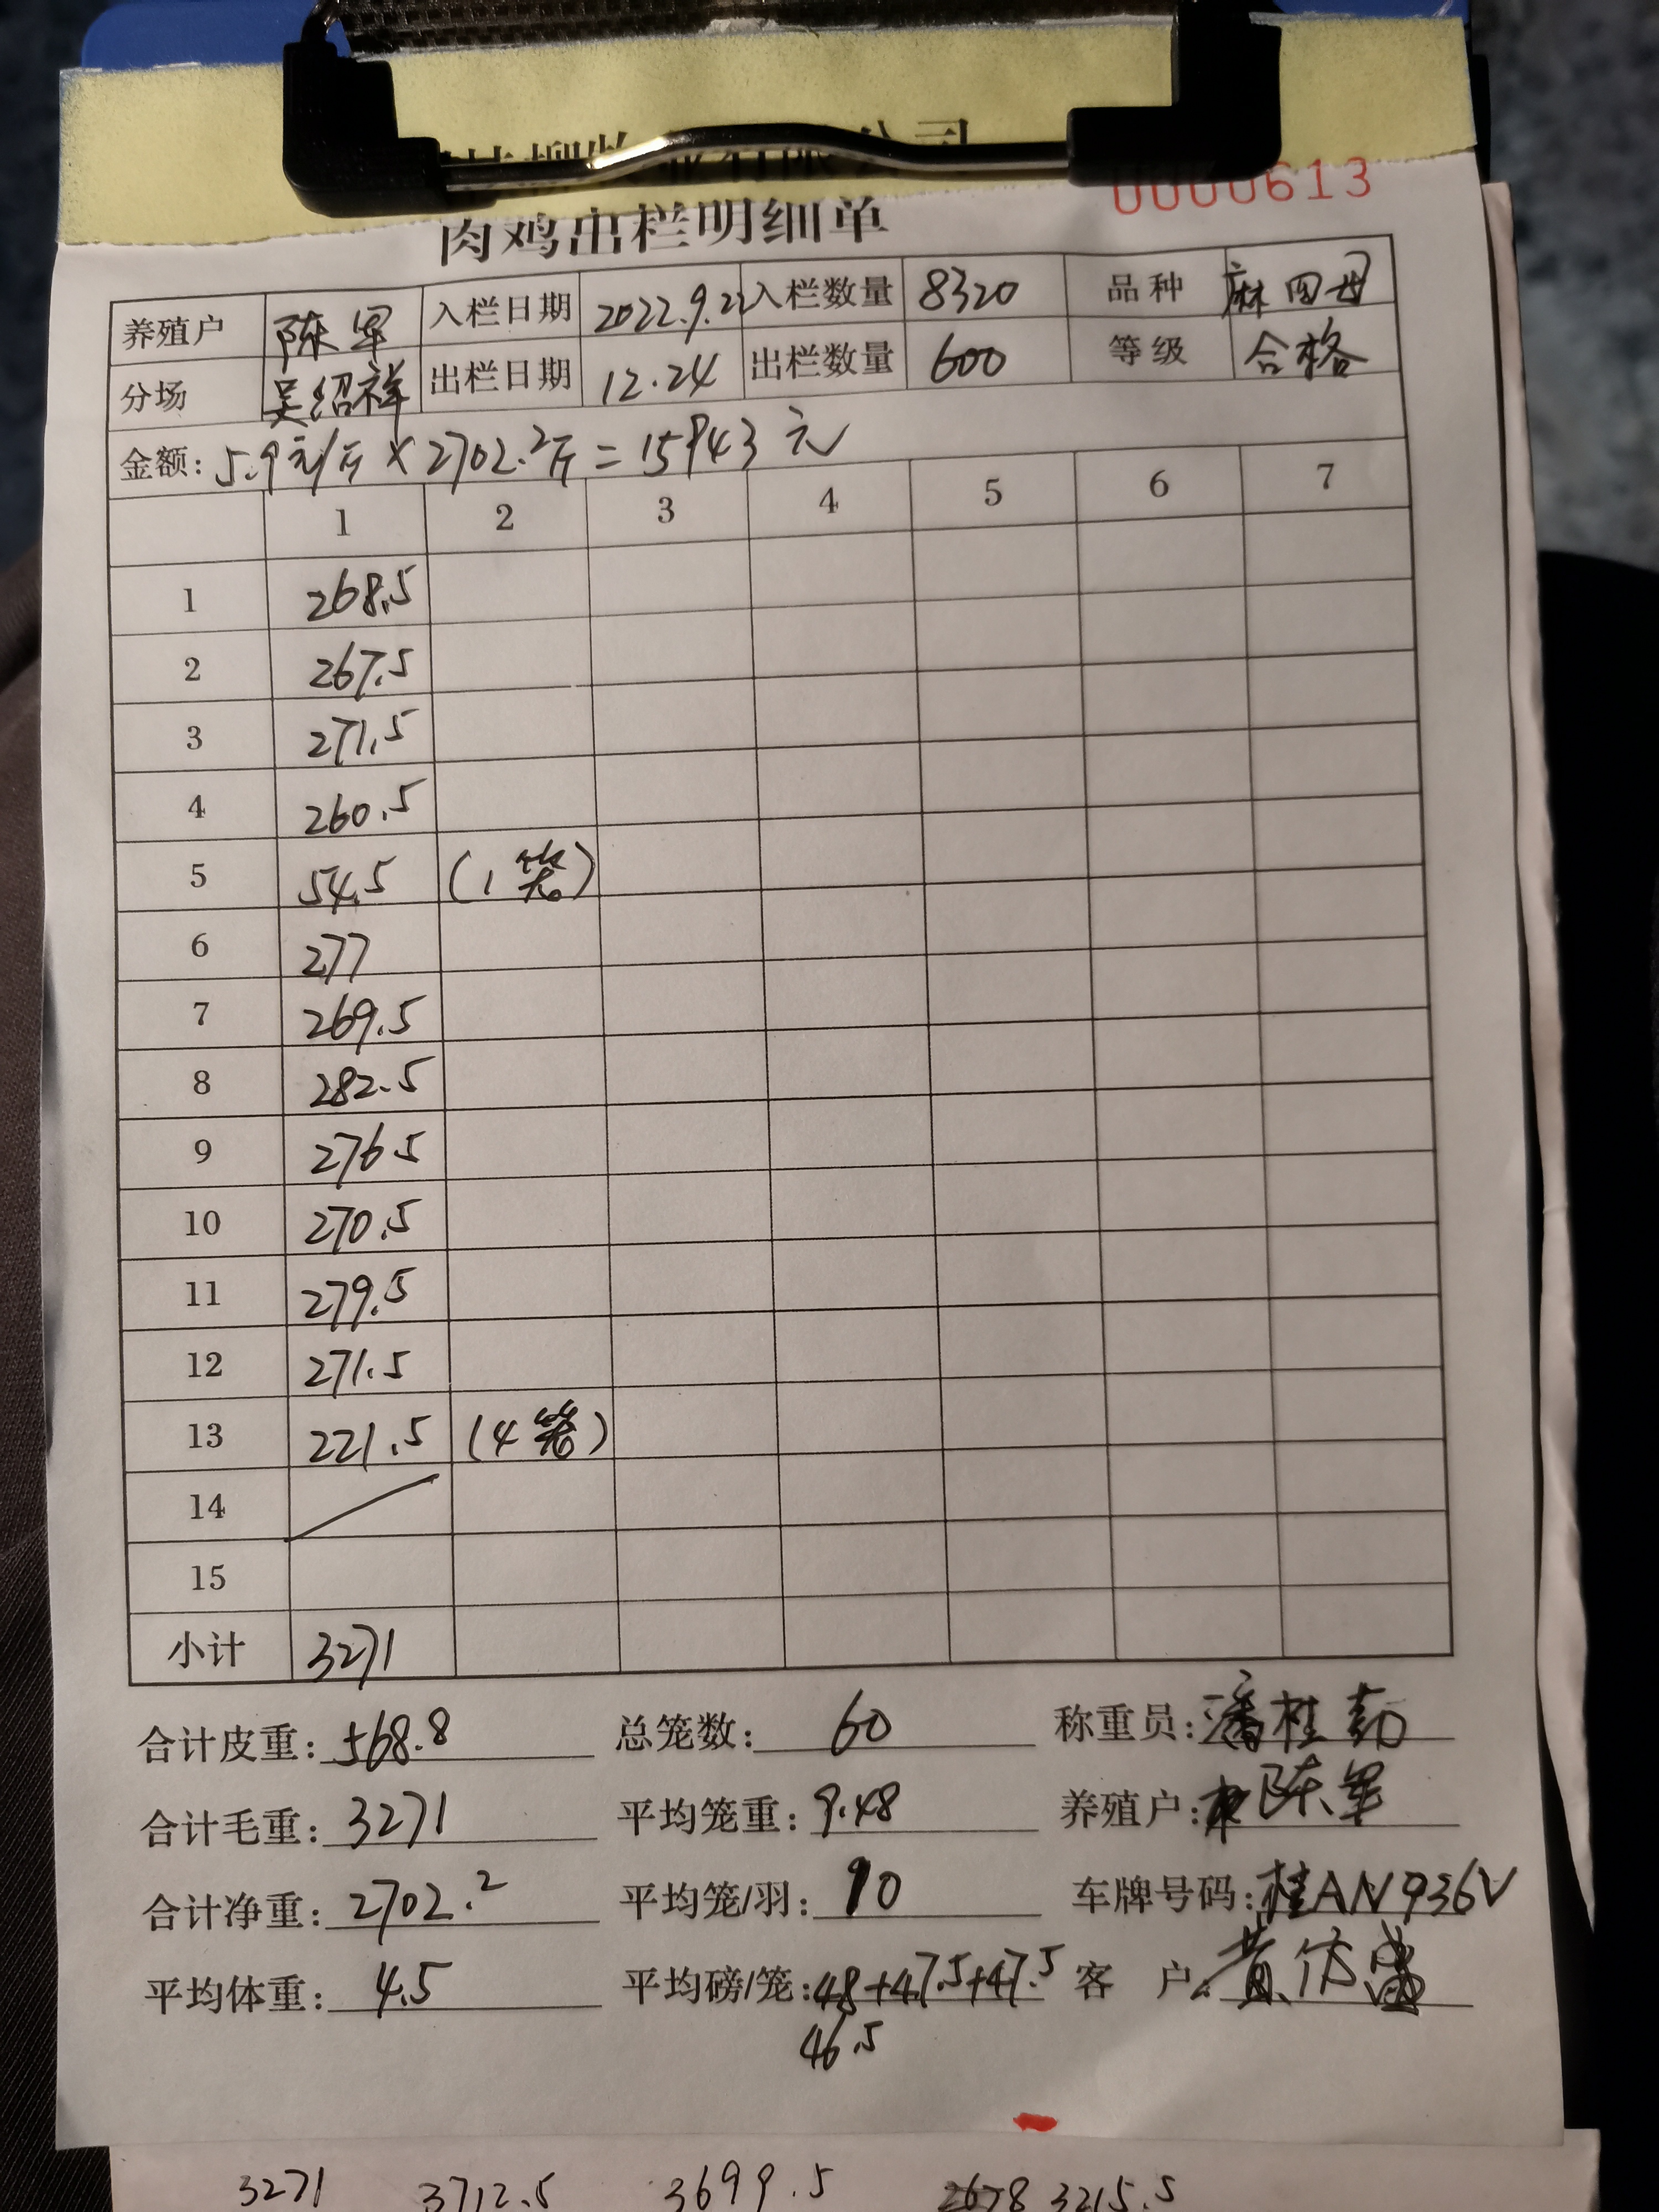 公司
0000613
肉鸡出栏明细单
养殖户 陈军 入栏日期 2022.9.22 入栏数量 8320 品种 麻四母
分场 吴绍祥 出栏日期 12.24 出栏数量 600 等级 合格
金额: 5.9元/斤 × 2702.2斤 = 15943 元
1 2 3 4 5 6 7
1 268.5
2 267.5
3 271.5
4 260.5
5 54.5 (1笼)
6 277
7 269.5
8 282.5
9 276.5
10 270.5
11 279.5
12 271.5
13 221.5 (4笼)
14
15
小计 3271
合计皮重: 568.8 总笼数: 60 称重员: 潘桂
合计毛重: 3271 平均笼重: 9.48 养殖户: 陈军
合计净重: 2702.2 平均笼/羽: 10 车牌号码: 桂AN936V
平均体重: 4.5 平均磅/笼: 48+47.5+47.5 客 户: 黄
46.5
3271 3712.5 3699.5 3215.5